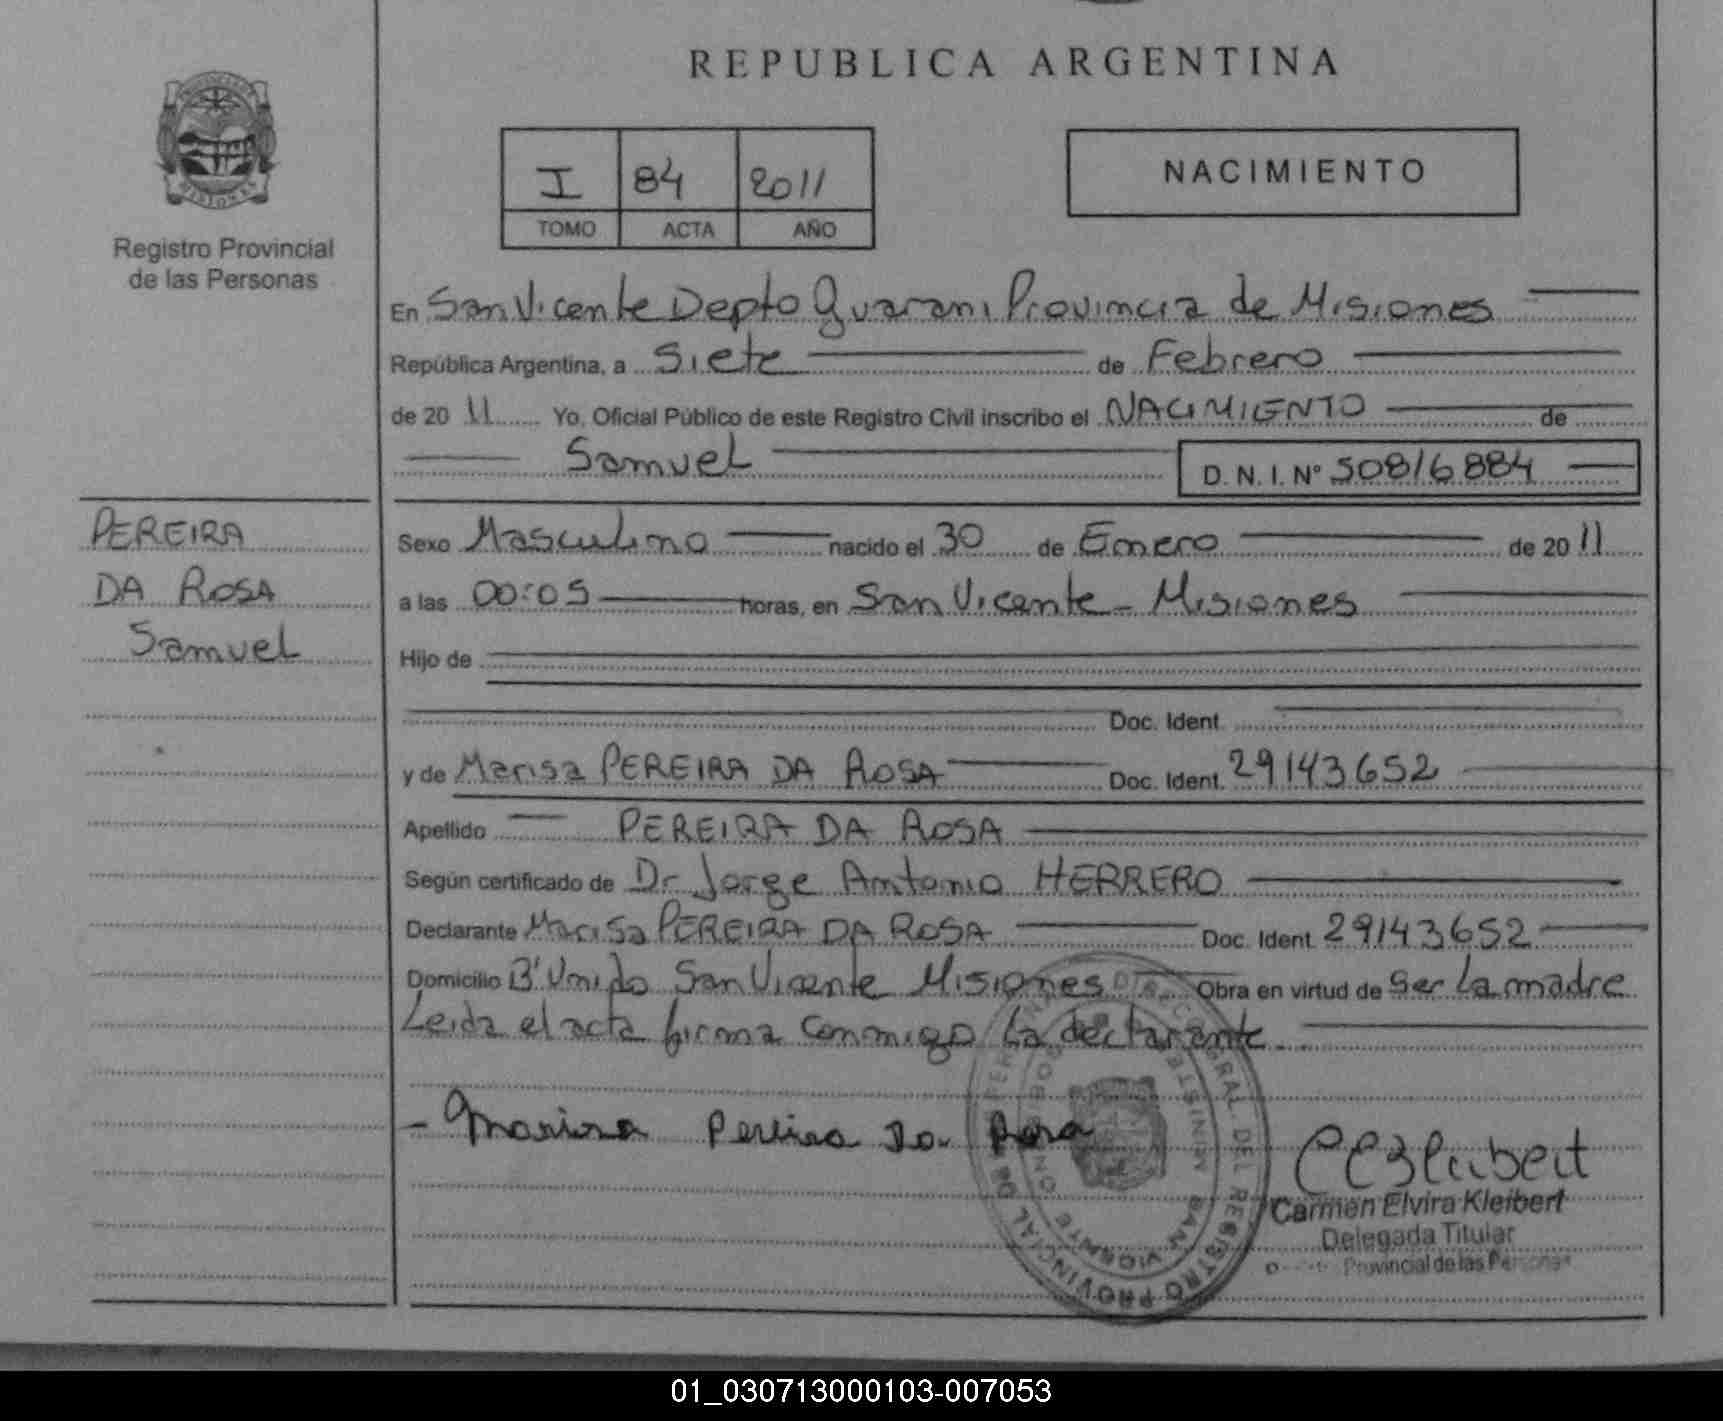 REPUBLICA ARGENTINA
PROVINCIA DE
MISIONES
Registro Provincial
de las Personas
I 84 2011
TOMO ACTA AÑO
NACIMIENTO
En San Vicente Depto Guarani Provincia de Misiones
República Argentina, a Siete de Febrero
de 20 11 Yo, Oficial Público de este Registro Civil inscribo el NACIMIENTO de
Samuel D. N. I. Nº 50816884
PEREIRA
DA ROSA
Samuel
Sexo Masculino nacido el 30 de Enero de 20 11
a las 00:05 horas, en San Vicente - Misiones
Hijo de
Doc. Ident.
y de Marisa PEREIRA DA ROSA Doc. Ident. 29143652
Apellido PEREIRA DA ROSA
Según certificado de Dr Jorge Antonio HERRERO
Declarante Marisa PEREIRA DA ROSA Doc. Ident. 29143652
Domicilio Bº Unido San Vicente Misiones Obra en virtud de Ser La madre
Leida el acta firma conmigo la declarante.
- Marisa Pereira Da Rosa
Carmen Elvira Kleibert
Delegada Titular
Provincial de las Personas
01_030713000103-007053